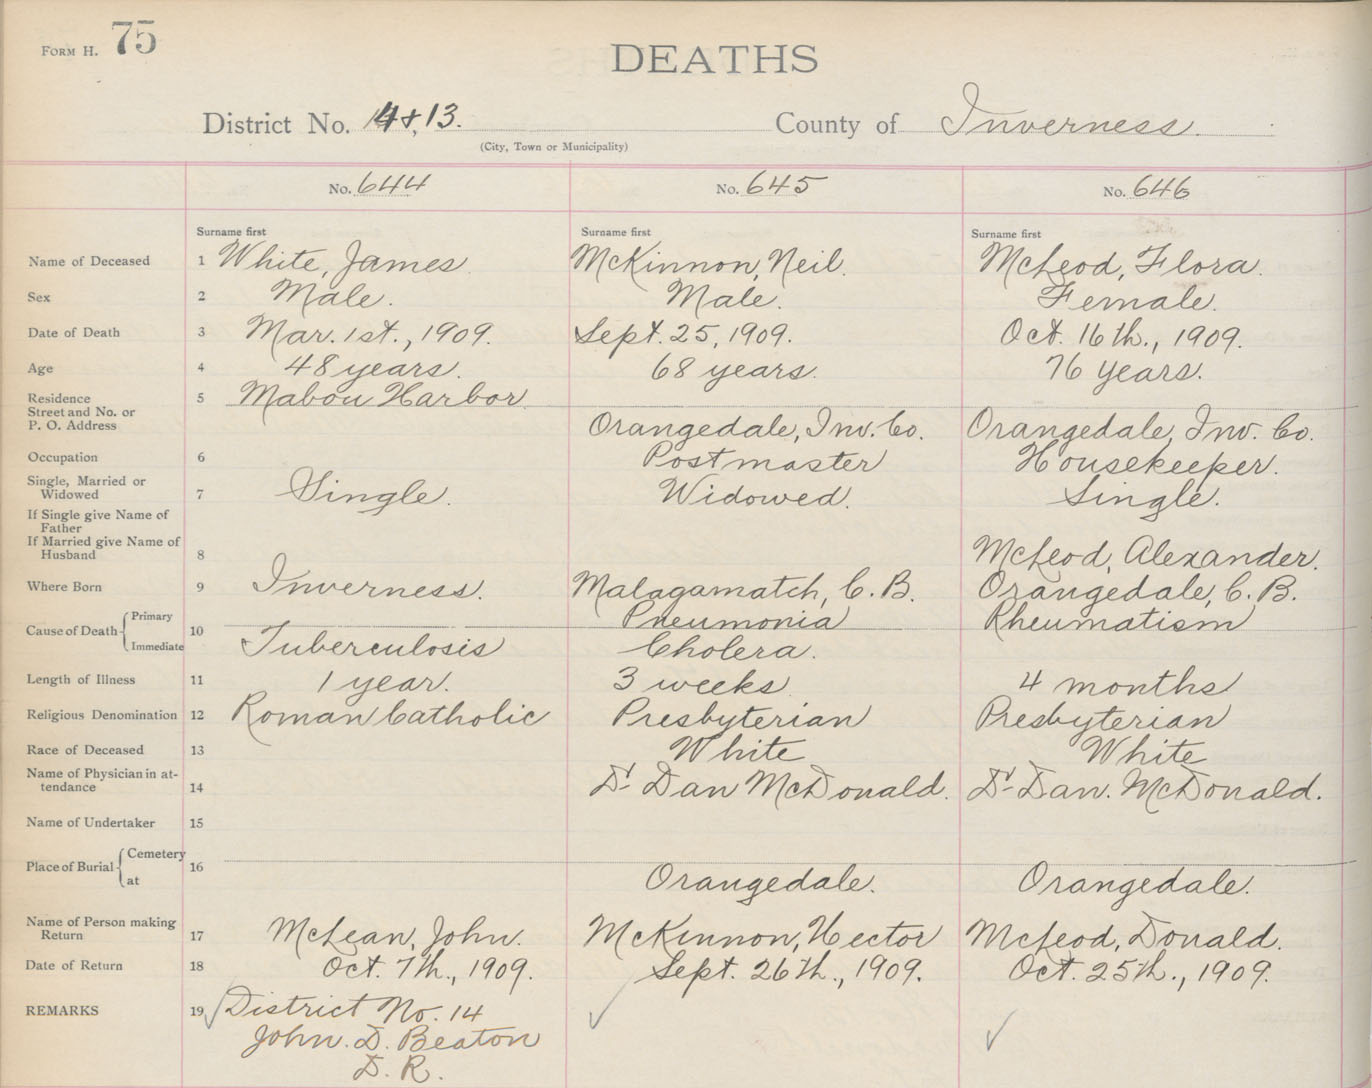 FORM H. 75
DEATHS
District No. 14 &, 13. County of Inverness.
(City, Town or Municipality)
No. 644 No. 645 No. 646
Surname first Surname first Surname first
Name of Deceased 1 White, James McKinnon, Neil. McLeod, Flora.
Sex 2 Male. Male. Female.
Date of Death 3 Mar. 1st., 1909. Sept. 25, 1909. Oct. 16th., 1909.
Age 4 48 years. 68 years. 76 years.
Residence 5 Mabou Harbor
Street and No. or
P. O. Address Orangedale, Inv. Co. Orangedale, Inv. Co.
Occupation 6 Postmaster Housekeeper.
Single, Married or
Widowed 7 Single. Widowed. Single.
If Single give Name of
Father
If Married give Name of
Husband 8 McLeod, Alexander.
Where Born 9 Inverness. Malagamatch, C. B. Orangedale, C. B.
Cause of Death Primary 10 Pneumonia Rheumatism
Immediate Tuberculosis Cholera.
Length of Illness 11 1 year. 3 weeks 4 months
Religious Denomination 12 Roman Catholic Presbyterian Presbyterian
Race of Deceased 13 White White
Name of Physician in at-
tendance 14 Dr Dan McDonald. Dr Dan. McDonald.
Name of Undertaker 15
Place of Burial Cemetery 16
at Orangedale. Orangedale.
Name of Person making
Return 17 McLean, John. McKinnon, Hector McLeod, Donald.
Date of Return 18 Oct. 7th., 1909. Sept. 26th., 1909. Oct. 25th., 1909.
REMARKS 19 District No. 14
John. D. Beaton
D. R.